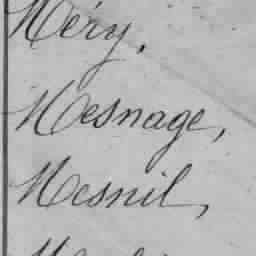 Méry,
Mesnage,
Mesnil,